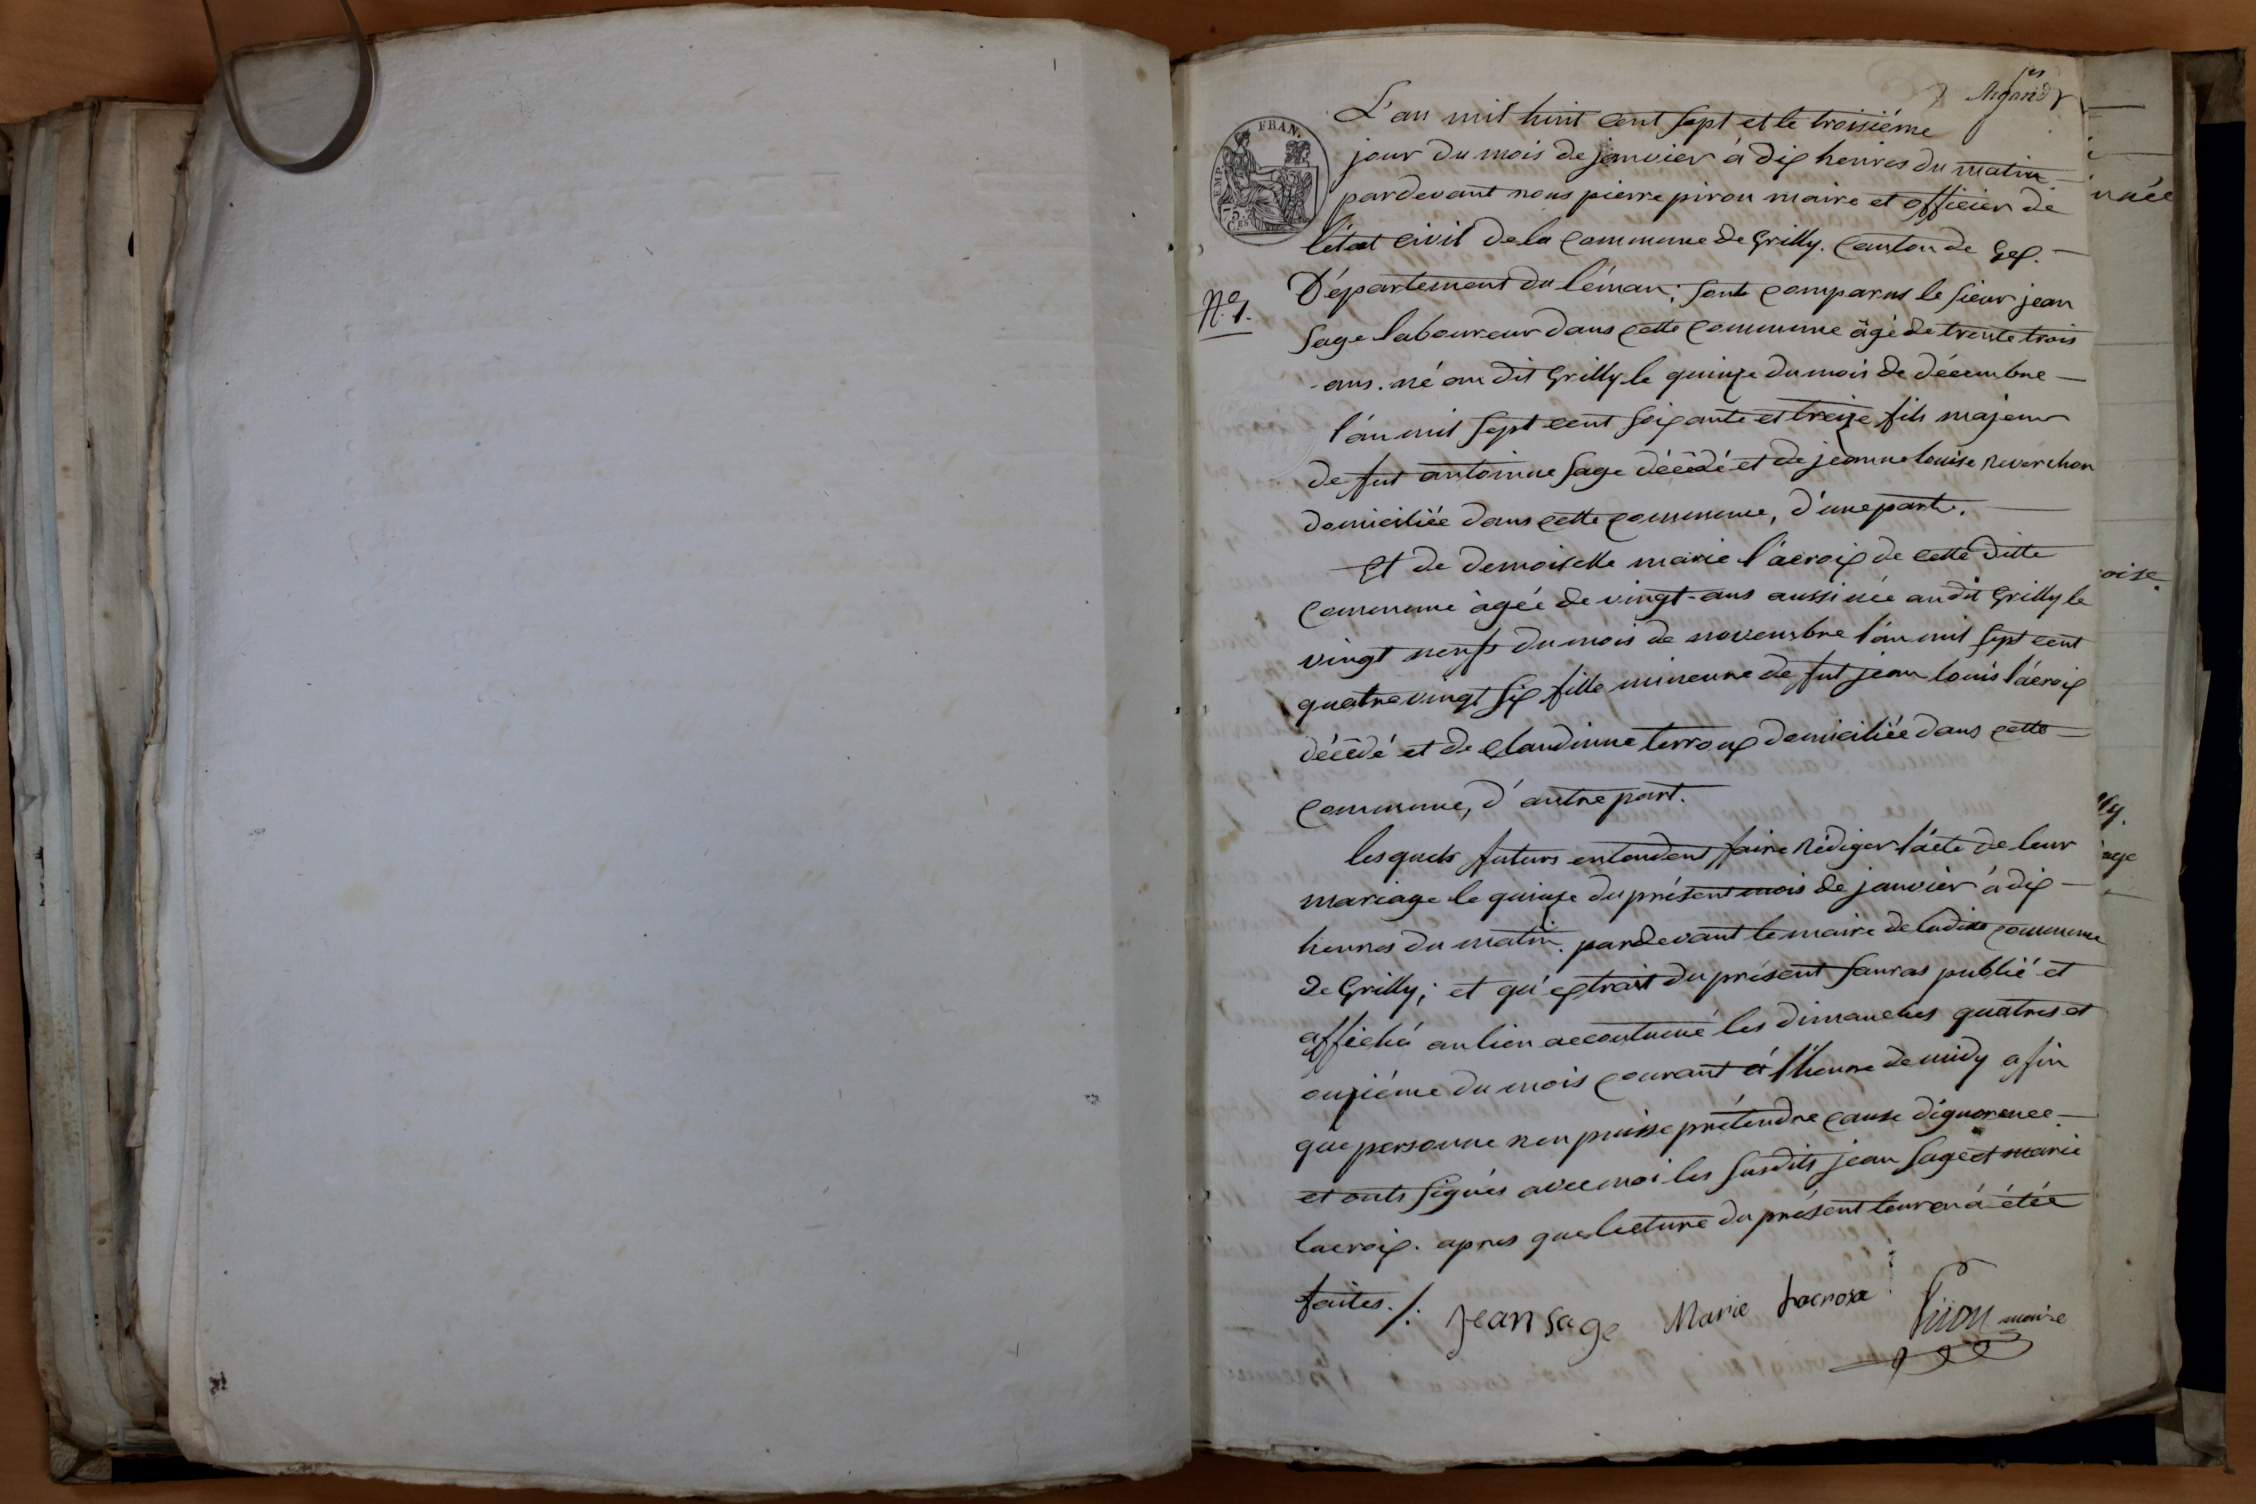 L'an mil huit cent sept et le troisiéme
jour du mois de janvier à dix heures du matin
pardevant nous pierre piron maire et officier de
l'état civil de la commune de Grilly. Canton de Gex.
Département du léman; sont comparus le sieur jean
N.o 1.
Sage laboureur dans cette commune âgé de trente trois
ans. né au dit Grilly le quinze du mois de décembre
l'án mil sept cent soixante et treize fils majeur
de fut antoinne Sage décédé et de jeanne louise Reverchon
domiciliée dans cette commune, d'une part.
Et de demoiselle marie l'acroix de cette ditte
commune àgée de vingt-ans aussi née audit Grilly le
vingt neufs du mois de novembre l'án mil sept cent
quatre vingt six fille mineure de fut jean louis l'ácroix
décédé et de Claudinne terroux domiciliée dans cette
commune, d'autre part.
lesquels futurs entendent faire Rédiger l'ácte de leur
mariage le quinze du présent mois de janvier à dix
heures du matin. pardevant le maire de ladite commune
de Grilly; et qu'extrait du présent sauras publié et
affiché au lieu accoutumé les dimanches quatres et
onziéme du mois courant à l'heure de midy afin
que personne n'en puisse prétendre cause d'ignorence.
et onts signés avec moi les susdits jean Sage et marie
lacroix. apres que lecture du présent leur en á étée
faites./.
jean sage Marie Lacroix Piron maire
née
oise.
lly.
age